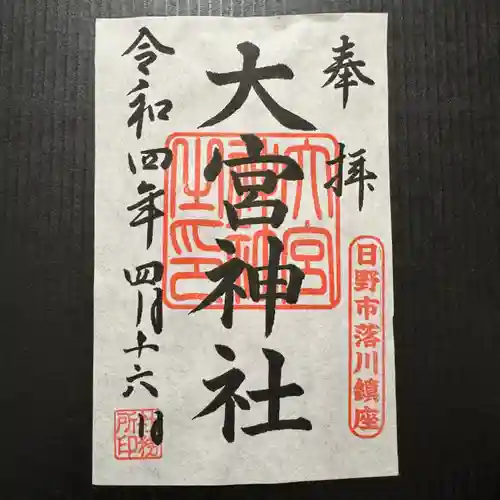 奉拝
日野市落川鎮座
大宮神社
大宮神社之印
令和四年四月十六日
社務所印